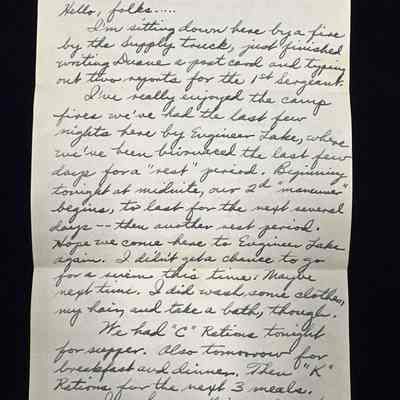 Hello, folks.....
I'm sitting down here by a fire
by the supply truck, just finished
writing Duane a post card and typing
out two reports for the 1st Sergeant.
I've really enjoyed the camp
fires we've had the last few
nights here by Engineer Lake, where
we've been bivouaced the last few
days for a "rest" period. Beginning
tonight at midnite, our 2d "maneuver"
begins, to last for the next several
days -- then another rest period.
Hope we come here to Engineer Lake
again. I didn't get a chance to go
for a swim this time: Maybe
next time. I did wash some clothes,
my hair, and take a bath, though.
We had "C" Rations tonight
for supper. Also tomorrow for
breakfast and dinner. Then "K"
Rations for the next 3 meals.